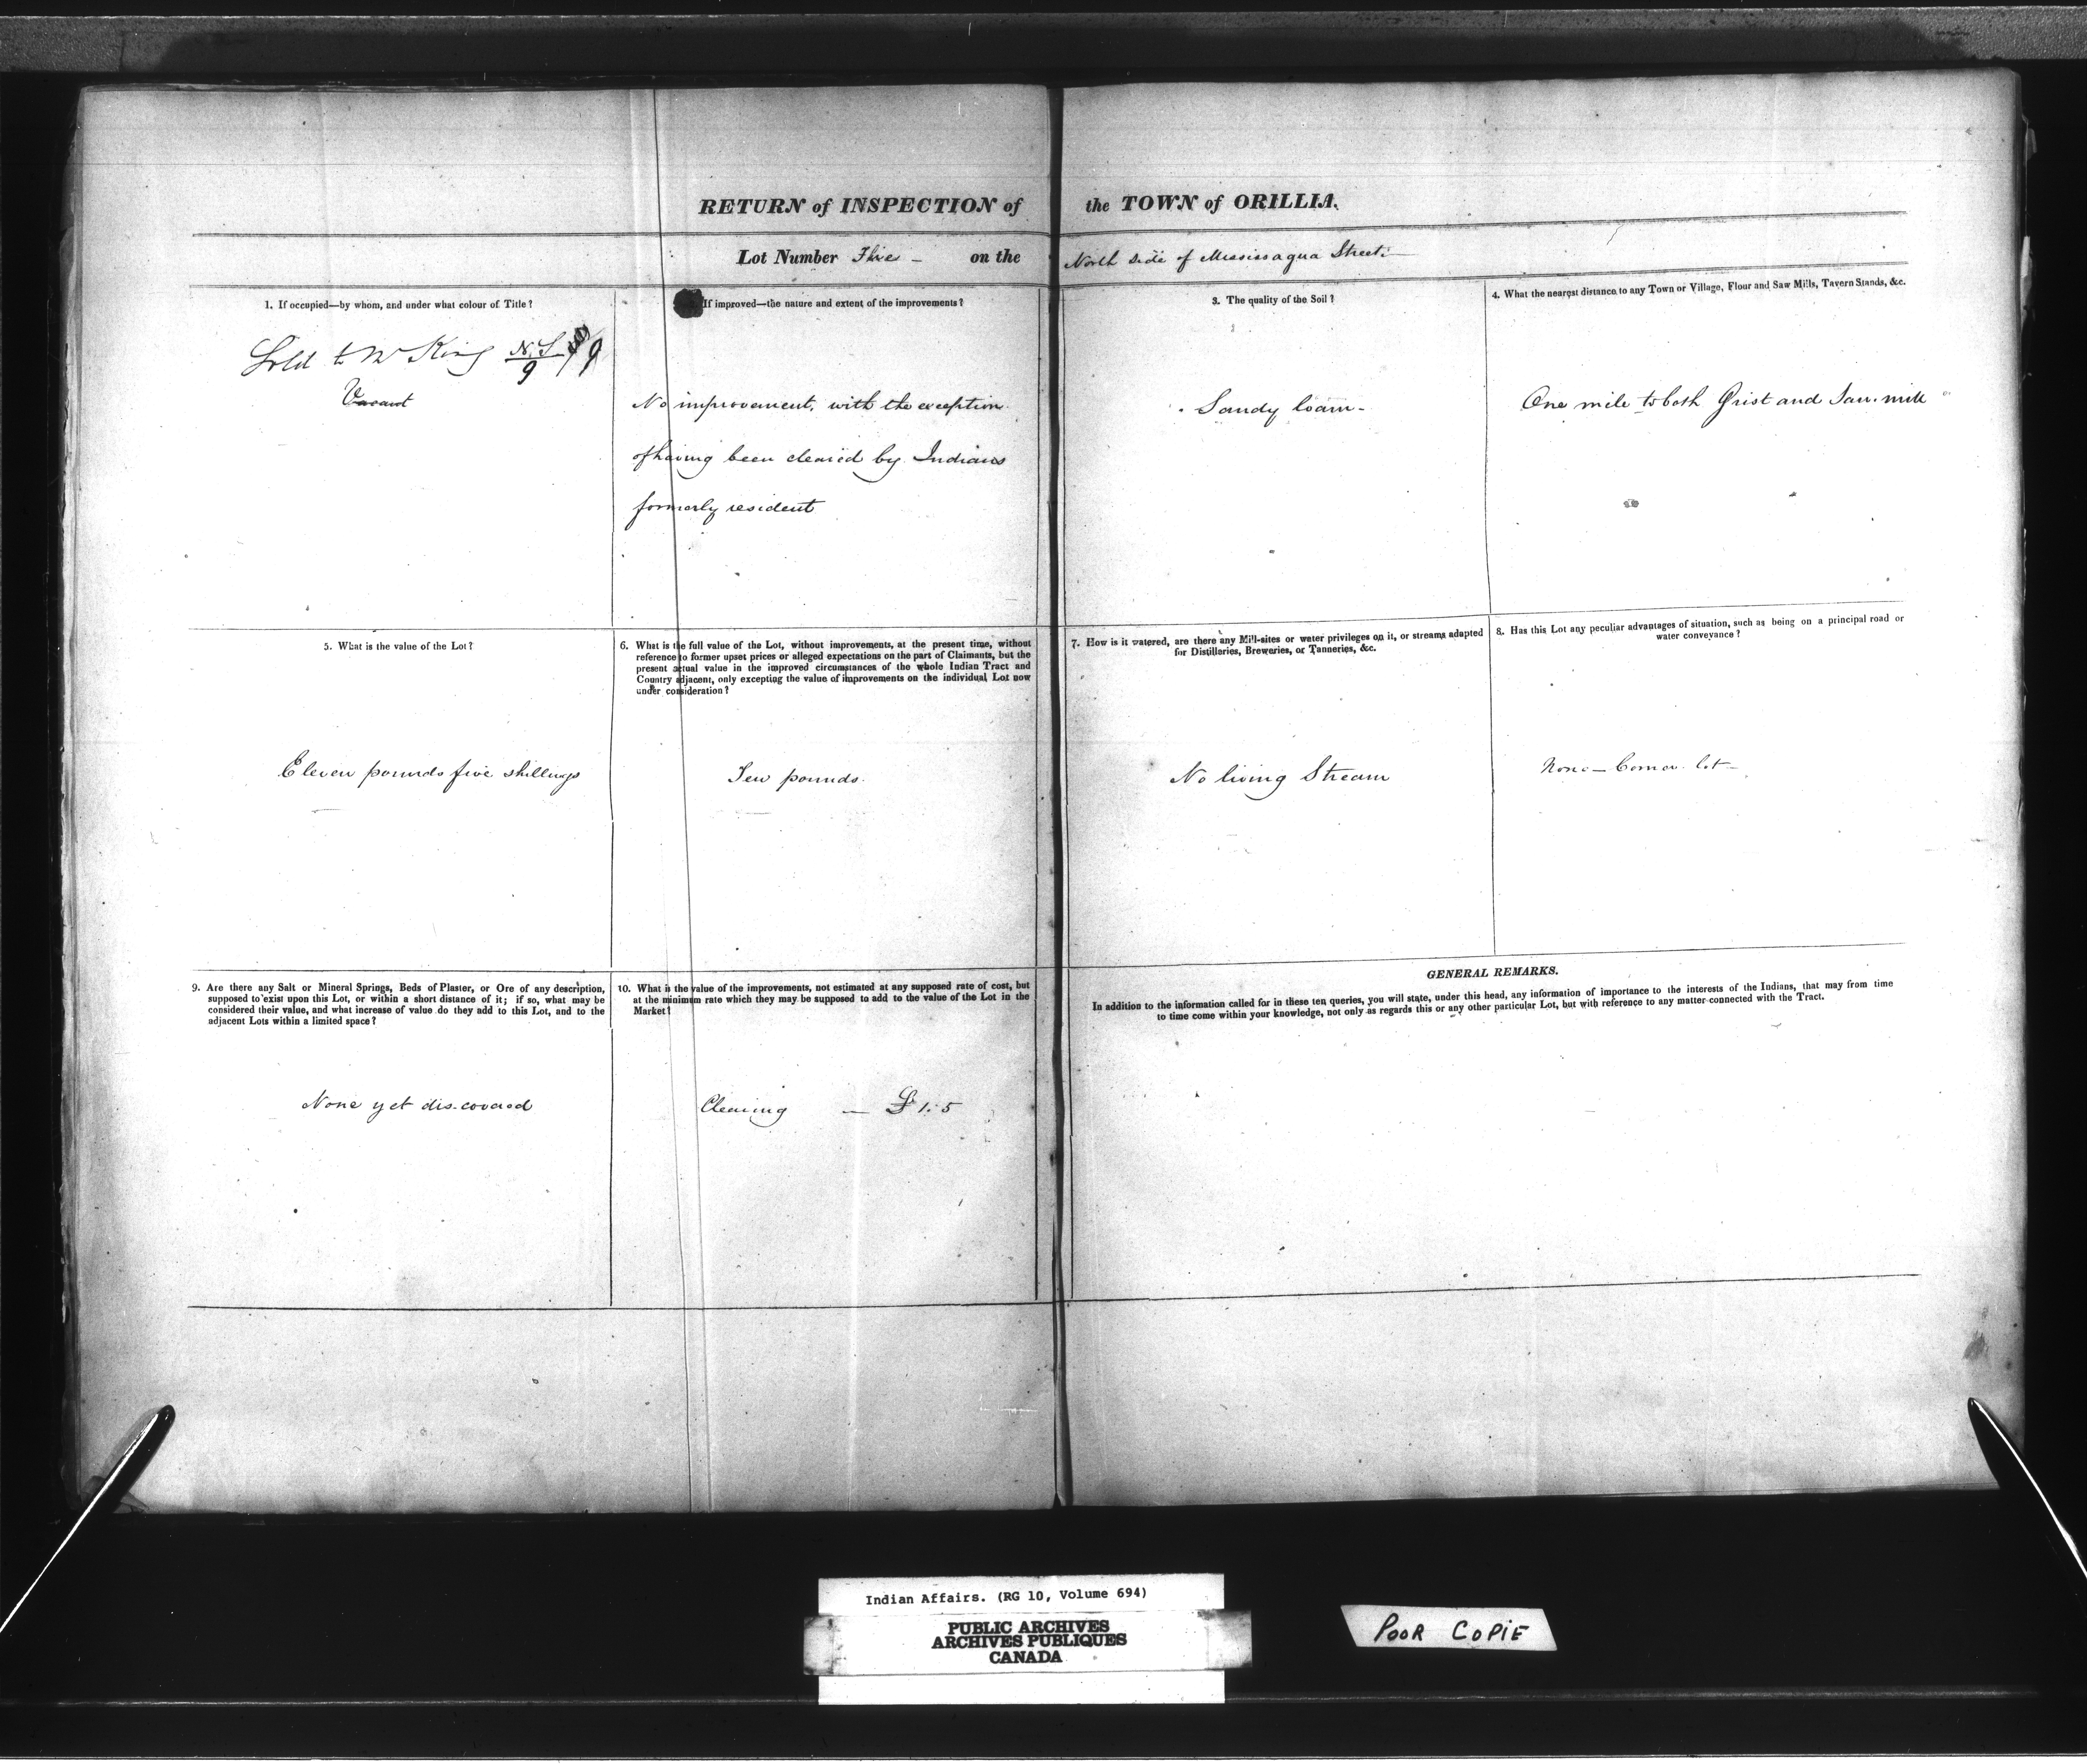 RETURN of INSPECTION of the TOWN of ORILLIA.
Lot Number Three – on the North side of Mississagua Street –
1. If occupied—by whom, and under what colour of Title?
Sold to Mr King N.S. 9
Vacant
If improved—the nature and extent of the improvements?
No improvement, with the exception
of having been cleared by Indians
formerly resident
3. The quality of the Soil?
Sandy loam –
4. What the nearest distance to any Town or Village, Flour and Saw Mills, Tavern Stands, &c.
One mile to both Grist and Saw. mill
5. What is the value of the Lot?
Eleven pounds five shillings
6. What is the full value of the Lot, without improvements, at the present time, without
reference to former upset prices or alleged expectations on the part of Claimants, but the
present actual value in the improved circumstances of the whole Indian Tract and
Country adjacent, only excepting the value of improvements on the individual Lot now
under consideration?
Ten pounds.
7. How is it watered, are there any Mill-sites or water privileges on it, or streams adapted
for Distilleries, Breweries, or Tanneries, &c.
No living Stream
8. Has this Lot any peculiar advantages of situation, such as being on a principal road or
water conveyance?
None – Corner lot –
9. Are there any Salt or Mineral Springs, Beds of Plaster, or Ore of any description,
supposed to exist upon this Lot, or within a short distance of it; if so, what may be
considered their value, and what increase of value do they add to this Lot, and to the
adjacent Lots within a limited space?
None yet discovered
10. What is the value of the improvements, not estimated at any supposed rate of cost, but
at the minimum rate which they may be supposed to add to the value of the Lot in the
Market?
Clearing — £1:5
GENERAL REMARKS.
In addition to the information called for in these ten queries, you will state, under this head, any information of importance to the interests of the Indians, that may from time
to time come within your knowledge, not only as regards this or any other particular Lot, but with reference to any matter connected with the Tract.
Indian Affairs. (RG 10, Volume 694)
PUBLIC ARCHIVES
ARCHIVES PUBLIQUES
CANADA
POOR COPIE